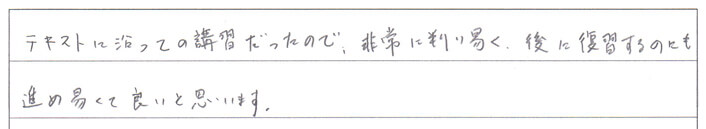 テキストに沿っての講習だったので、非常に判り易く、後に復習するのにも
進め易くて良いと思います。